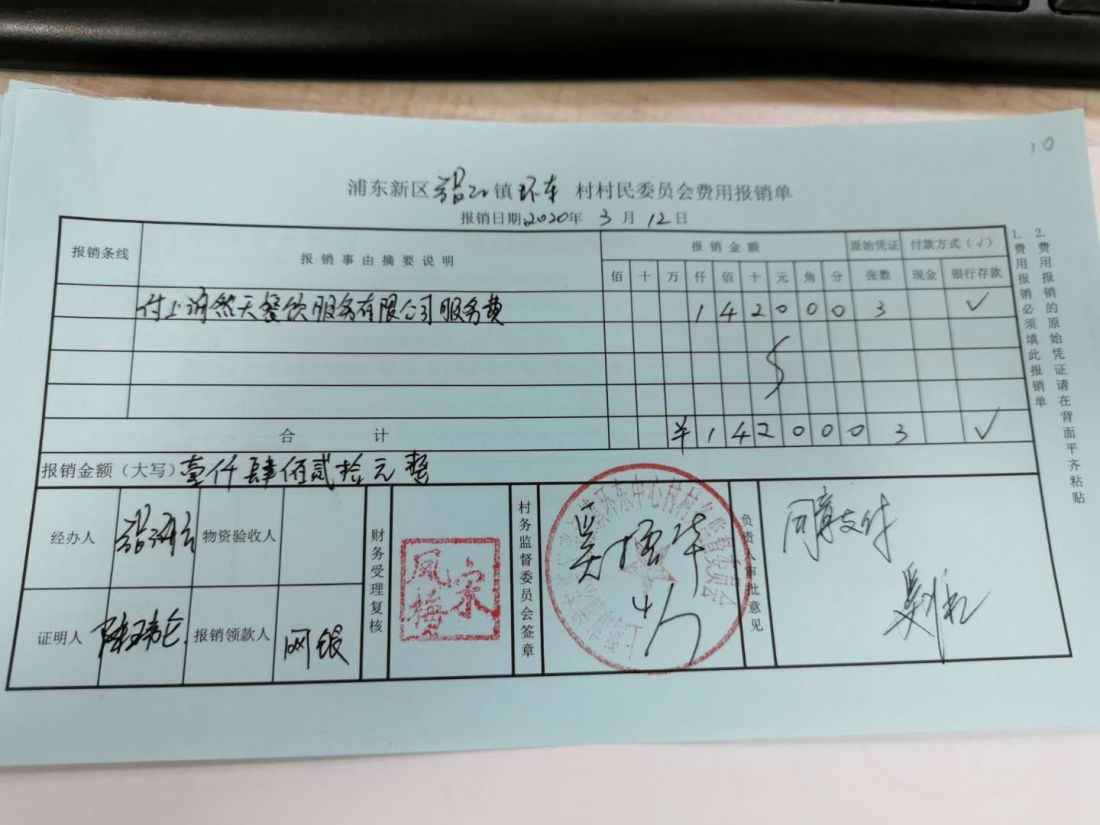 10
浦东新区张江镇环东村村民委员会费用报销单
报销日期2020年3月12日
报销条线 报销事由摘要说明 报销金额 原始凭证 付款方式(√)
佰 十 万 仟 佰 十 元 角 分 张数 现金 银行存款
付上海然天餐饮服务有限公司服务费 1 4 2 0 0 0 3 √
合计 ¥ 1 4 2 0 0 0 3 √
报销金额(大写)壹仟肆佰贰拾元整
经办人 物资验收人 财务受理复核 宋凤梅 村务监督委员会签章 负责人审批意见 同意支付
证明人 报销领款人 网银
1.费用报销必须填此报销单
2.费用报销的原始凭证请在背面平齐粘贴